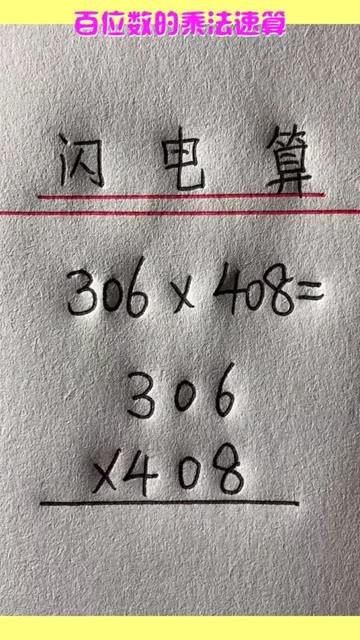 百位数的乘法速算
闪电算
306×408=
306
×408